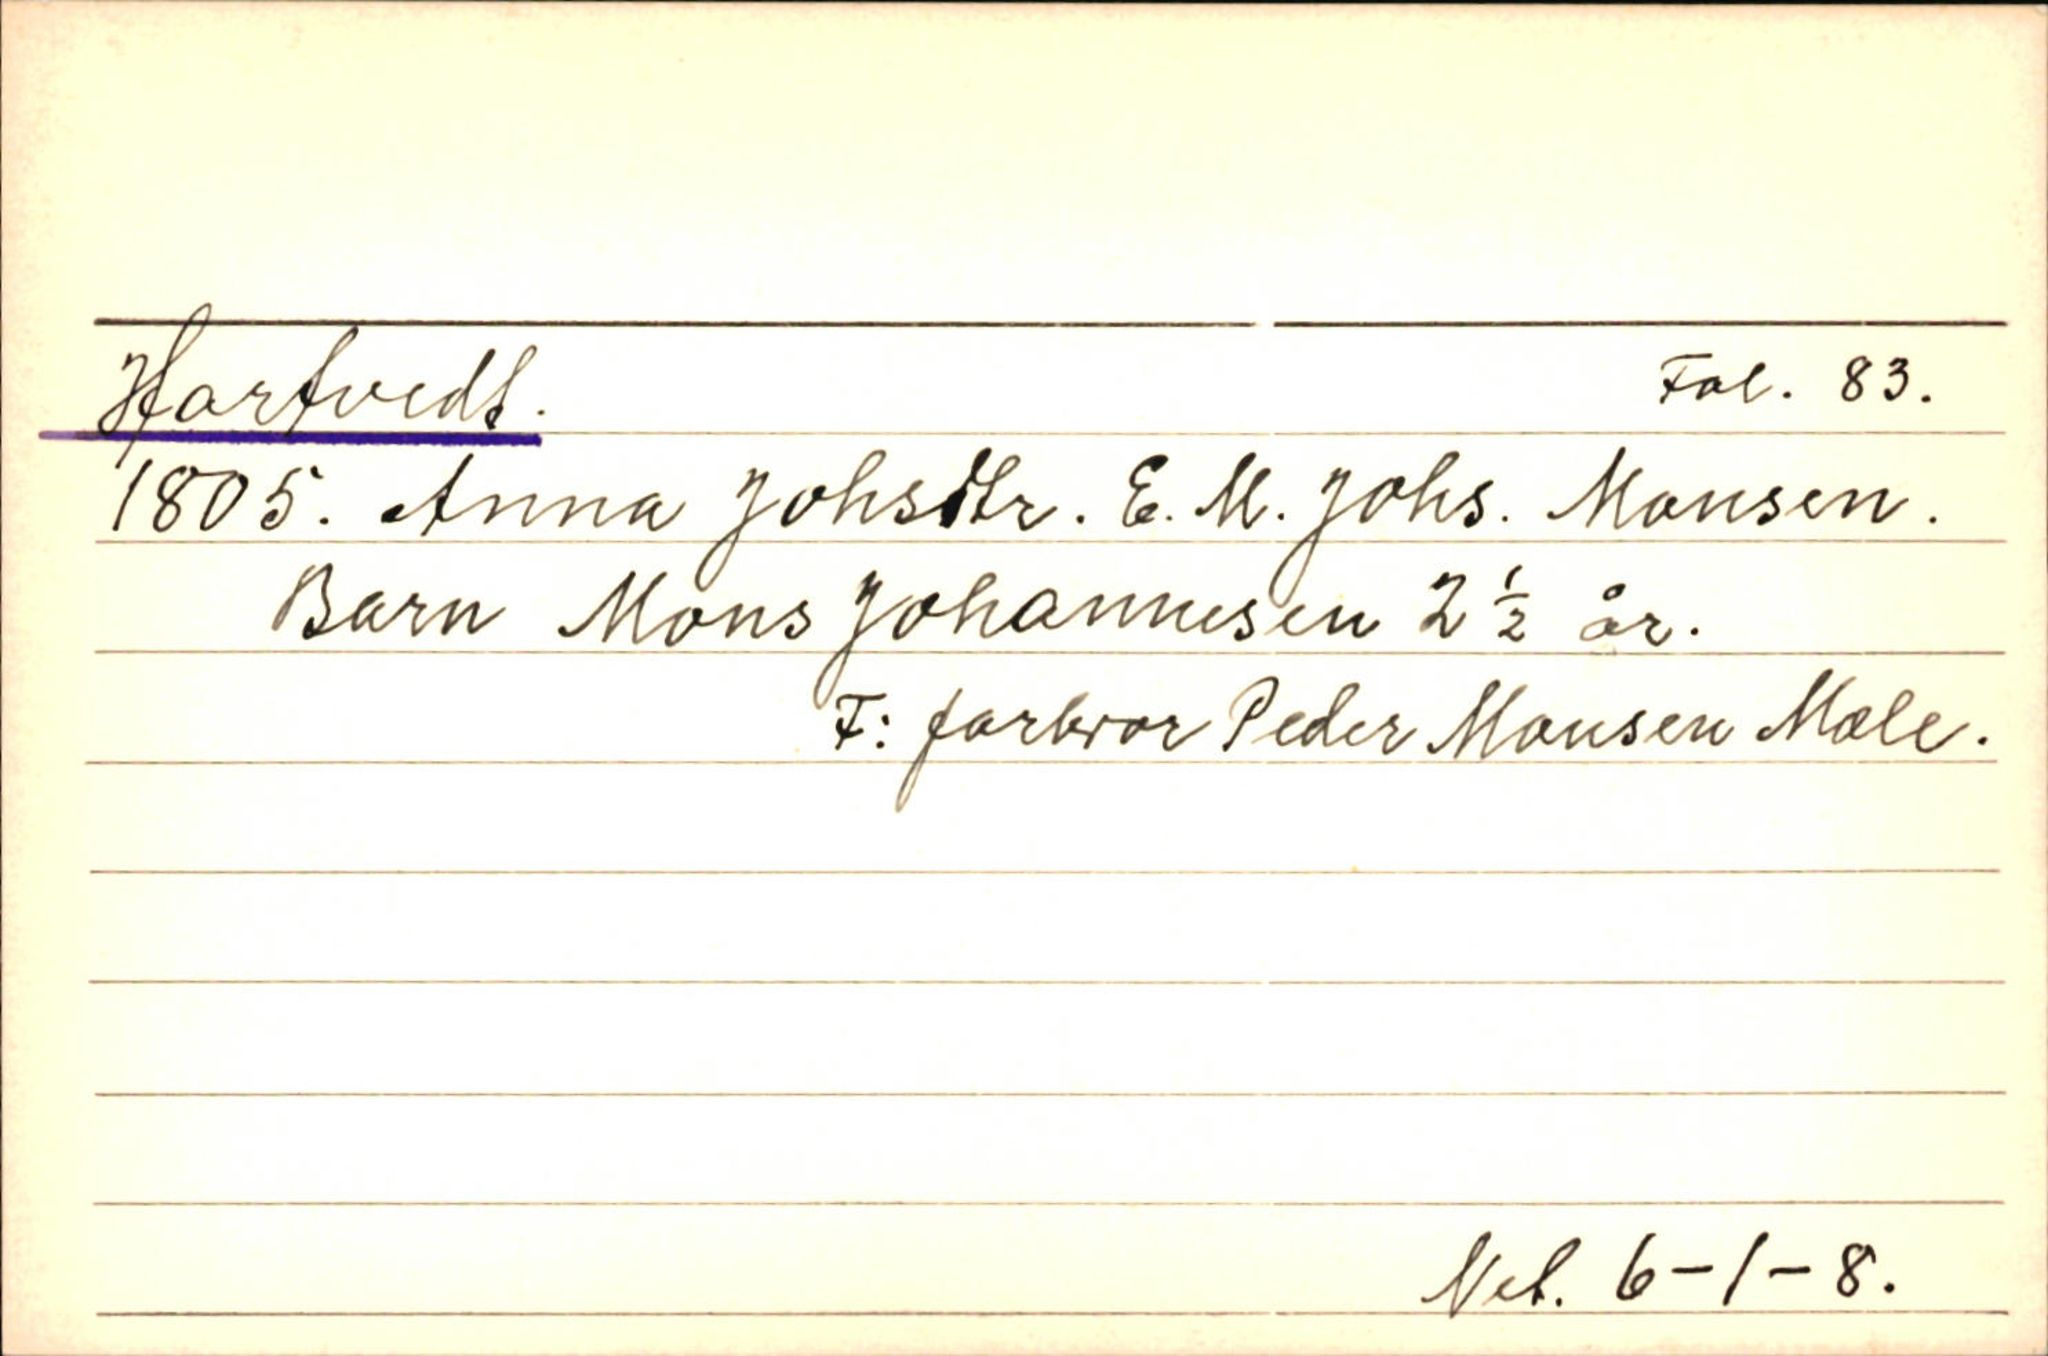 Hartvedt. Fol. 83.
1805. Anna Johsdtr. E. M. Johs. Monsen.
Barn Mons Johannesen 2 ½ år.
F: farbror Peder Monsen Mæle.
Net. 6-1-8.